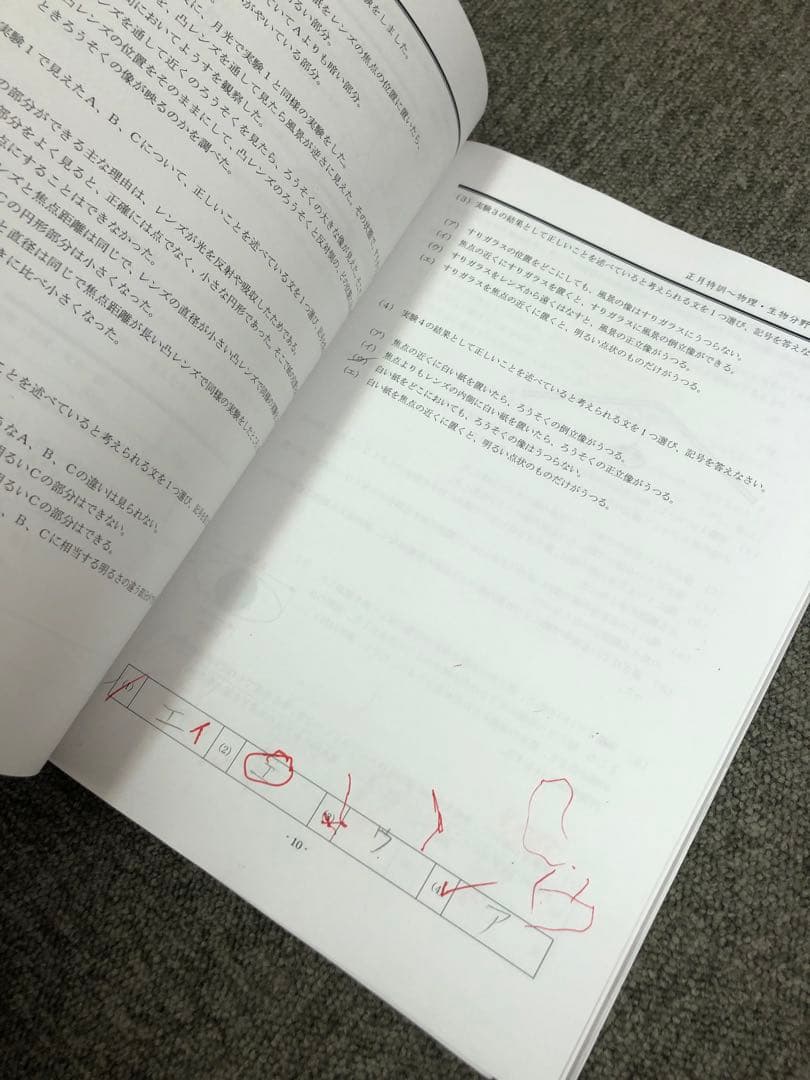 験をしました。
紙をレンズの焦点の位置に置いたら、
るい部分。
ていてAよりも暗い部分。
がやいている部分。
に、月光で実験1と同様の実験をした。
凸レンズを通して見たら風景が逆さに見えた。その状態で、
においてようすを観察した。
ンズを通して近くのろうそくを見たら、ろうそくの大きな像が見えた。
レンズの位置をそのままにして、凸レンズのろうそくと反対側の、どの位置に
ときろうそくの像が映るのかを調べた。
実験1で見えたA、B、Cについて、正しいことを述べている文を1つ選び、
の部分ができる主な理由は、レンズが光を反射や吸収したためである。
部分をよく見ると、正確には点でなく、小さな円形であった。そこで
点にすることはできなかった。
ンズと焦点距離は同じで、レンズの直径が小さい凸レンズで同様の
の円形部分は小さくなった。
と直径は同じで焦点距離が長い凸レンズで同様の実験をしたところ
きに比べ小さくなった。
ことを述べていると考えられる文を1つ選び、記号を
なA、B、Cの違いは見られない。
明るいCの部分はできない。
明るいCの部分はできる。
、B、Cに相当する明るさの違う部分が
正月特訓～物理・生物分野
(3) 実験3の結果として正しいことを述べていると考えられる文を1つ選び、記号を答えな
(ア) すりガラスの位置をどこにしても、風景の像はすりガラスにうつらない。
(イ) 焦点の近くにすりガラスを置くと、すりガラスに風景の倒立像ができる。
(ウ) すりガラスをレンズから遠くはなすと、風景の正立像がうつる。
(エ) すりガラスを焦点の近くに置くと、明るい点状のものだけがうつる。
(4) 実験4の結果として正しいことを述べていると考えられる文を1つ選び、記号を答えなさい。
(ア) 焦点の近くに白い紙を置いたら、ろうそくの倒立像がうつる。
(イ) 焦点よりもレンズの内側に白い紙を置いたら、ろうそくの正立像がうつる。
(ウ) 白い紙をどこにおいても、ろうそくの像はうつらない。
(エ) 白い紙を焦点の近くに置くと、明るい点状のものだけがうつる。
(1) エ イ (2) エ (3) ウ (4) ア
・10・